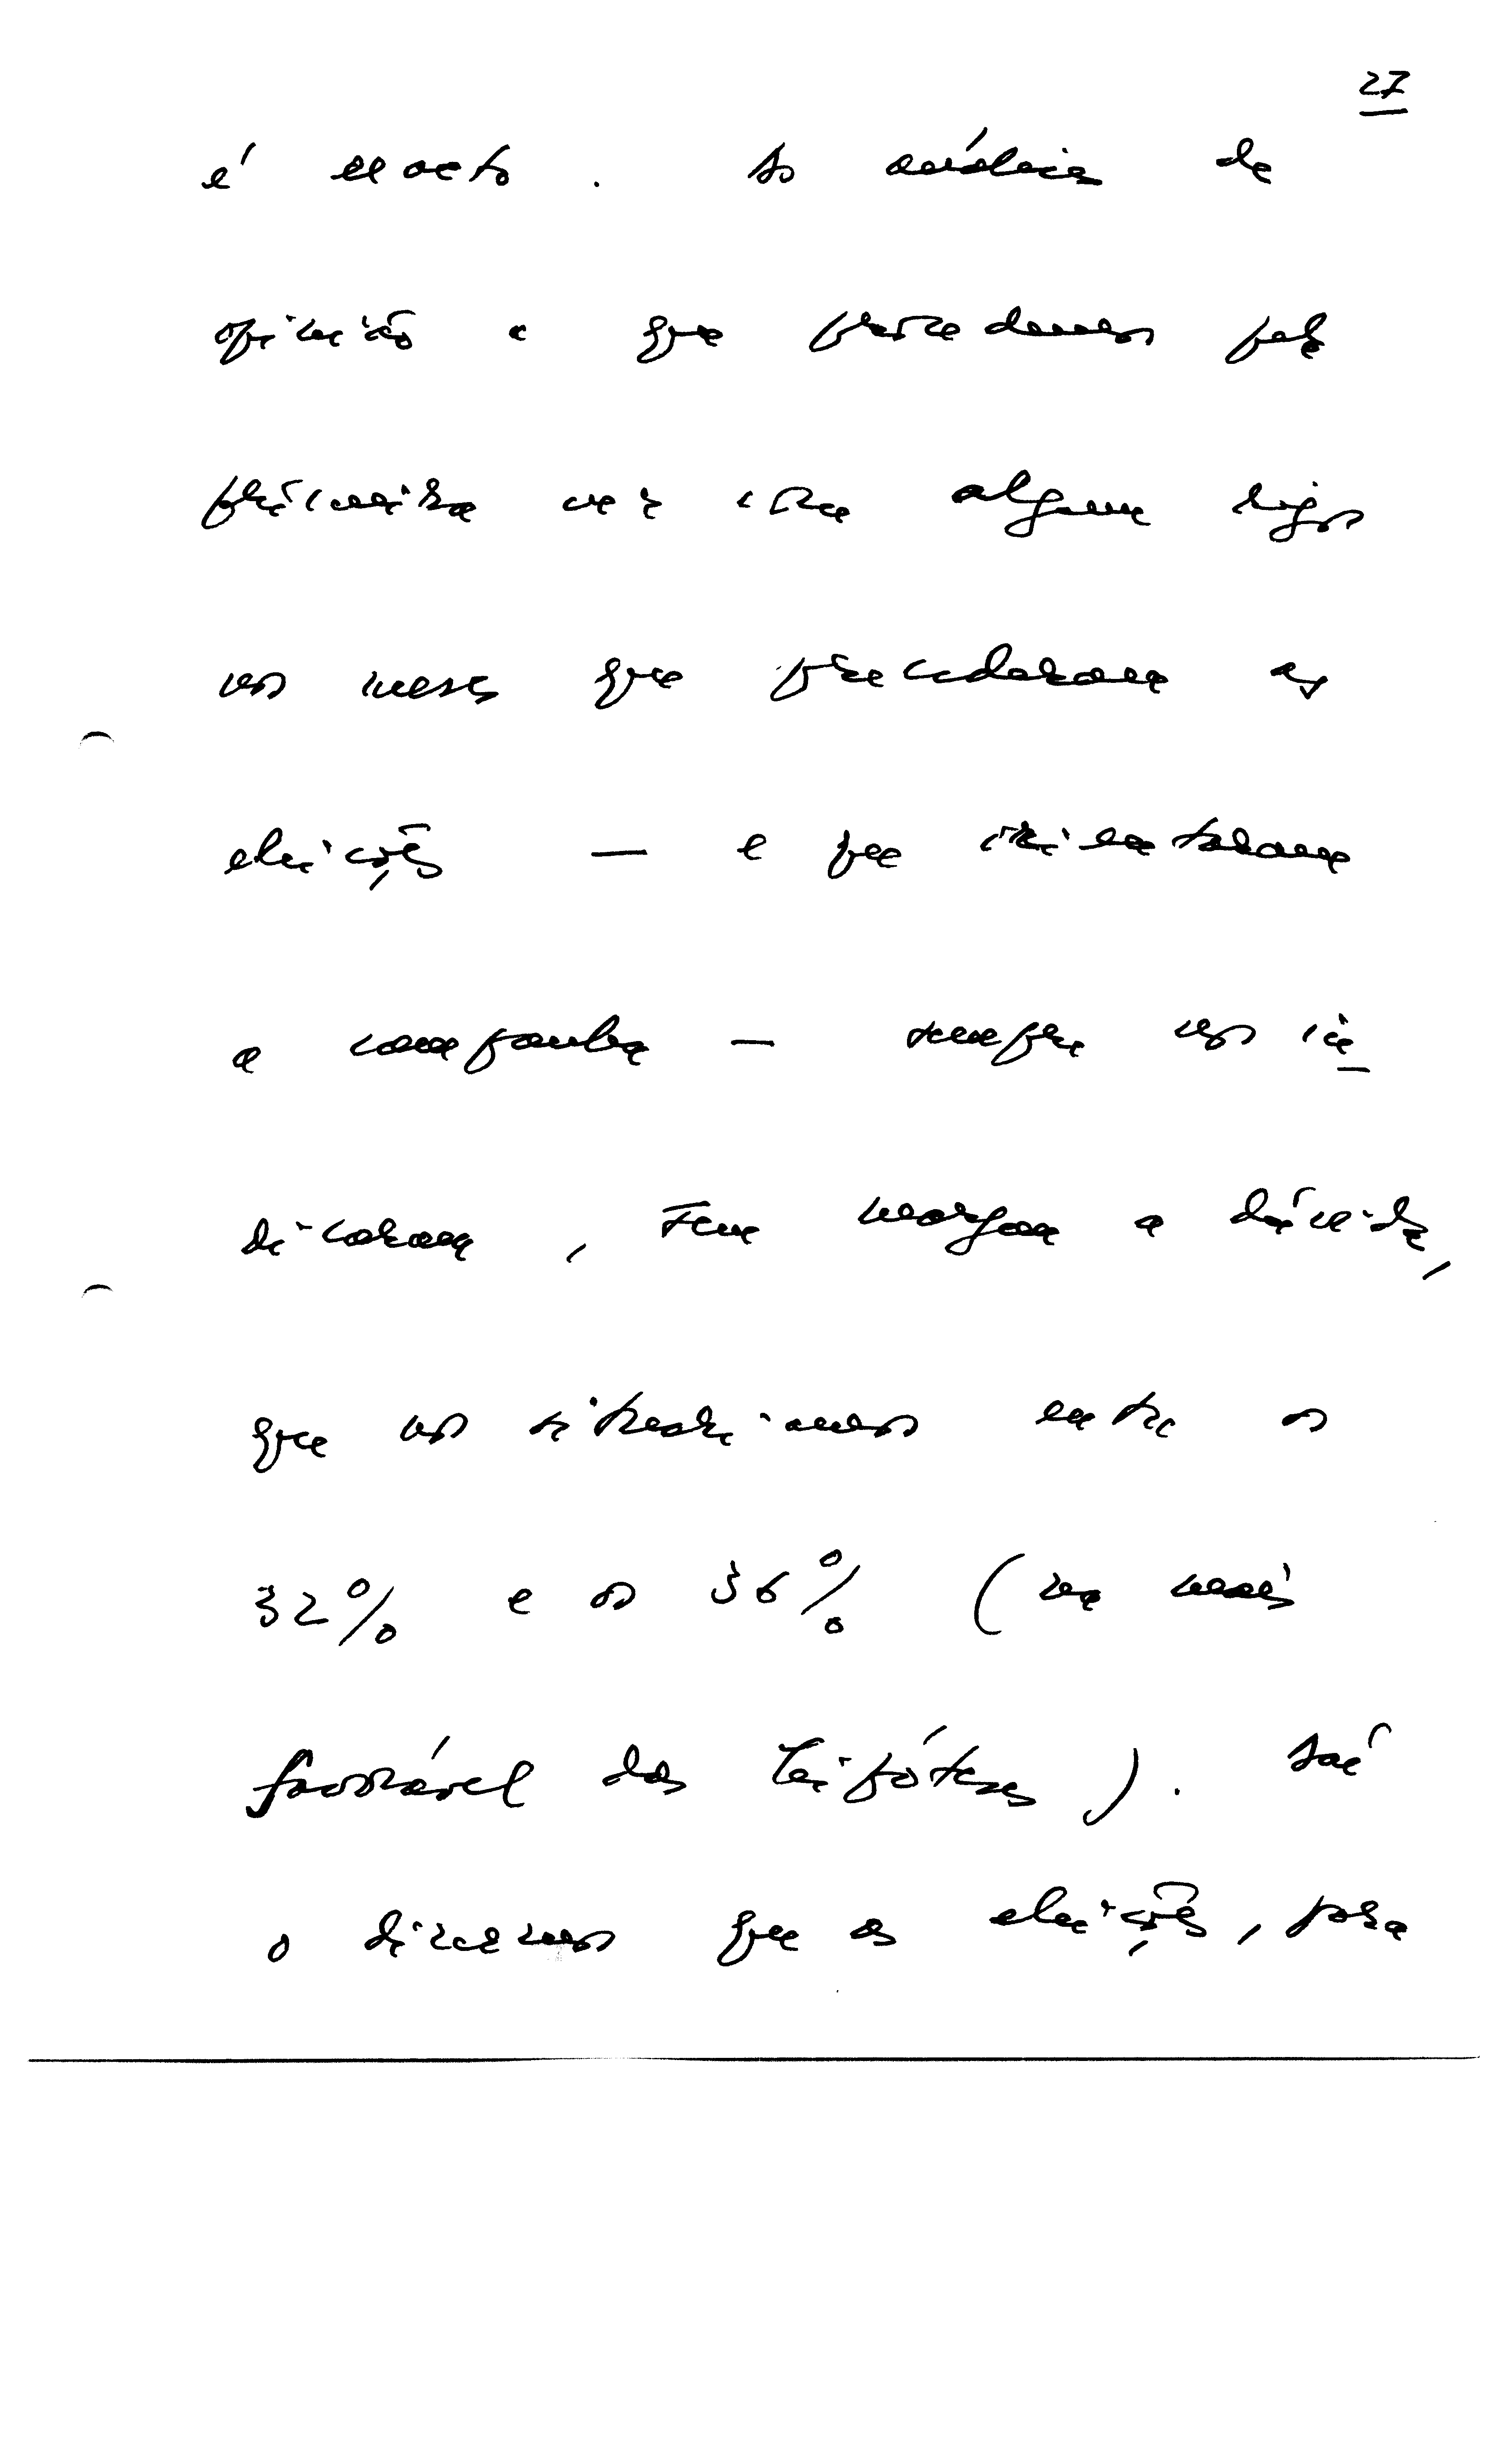 27
é exacto. As análises de
opinião a que procedemos pela
primeira vez com algum rigor
nos meses que precederam as
eleições — e que orientaram
a campanha — sempre nos in
dicaram, sem margem a dúvida,
que nos situaríamos entre os
32% e os 36% (na mais
favorável das hipóteses). Só
o dizermos que as eleições, para